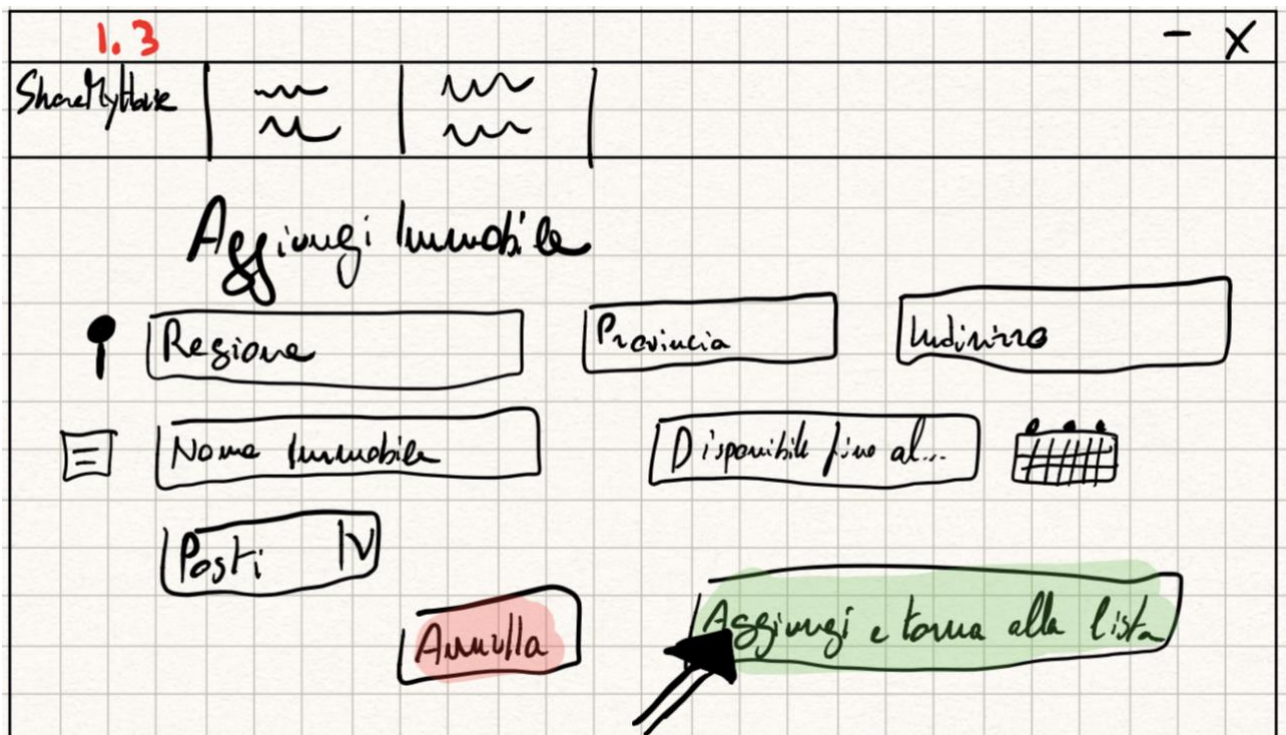 1.3
- X
ShareMyHouse
Aggiungi Immobile
Regione
Provincia
Indirizzo
Nome Immobile
Disponibile fino al...
Posti V
Annulla
Aggiungi e torna alla lista